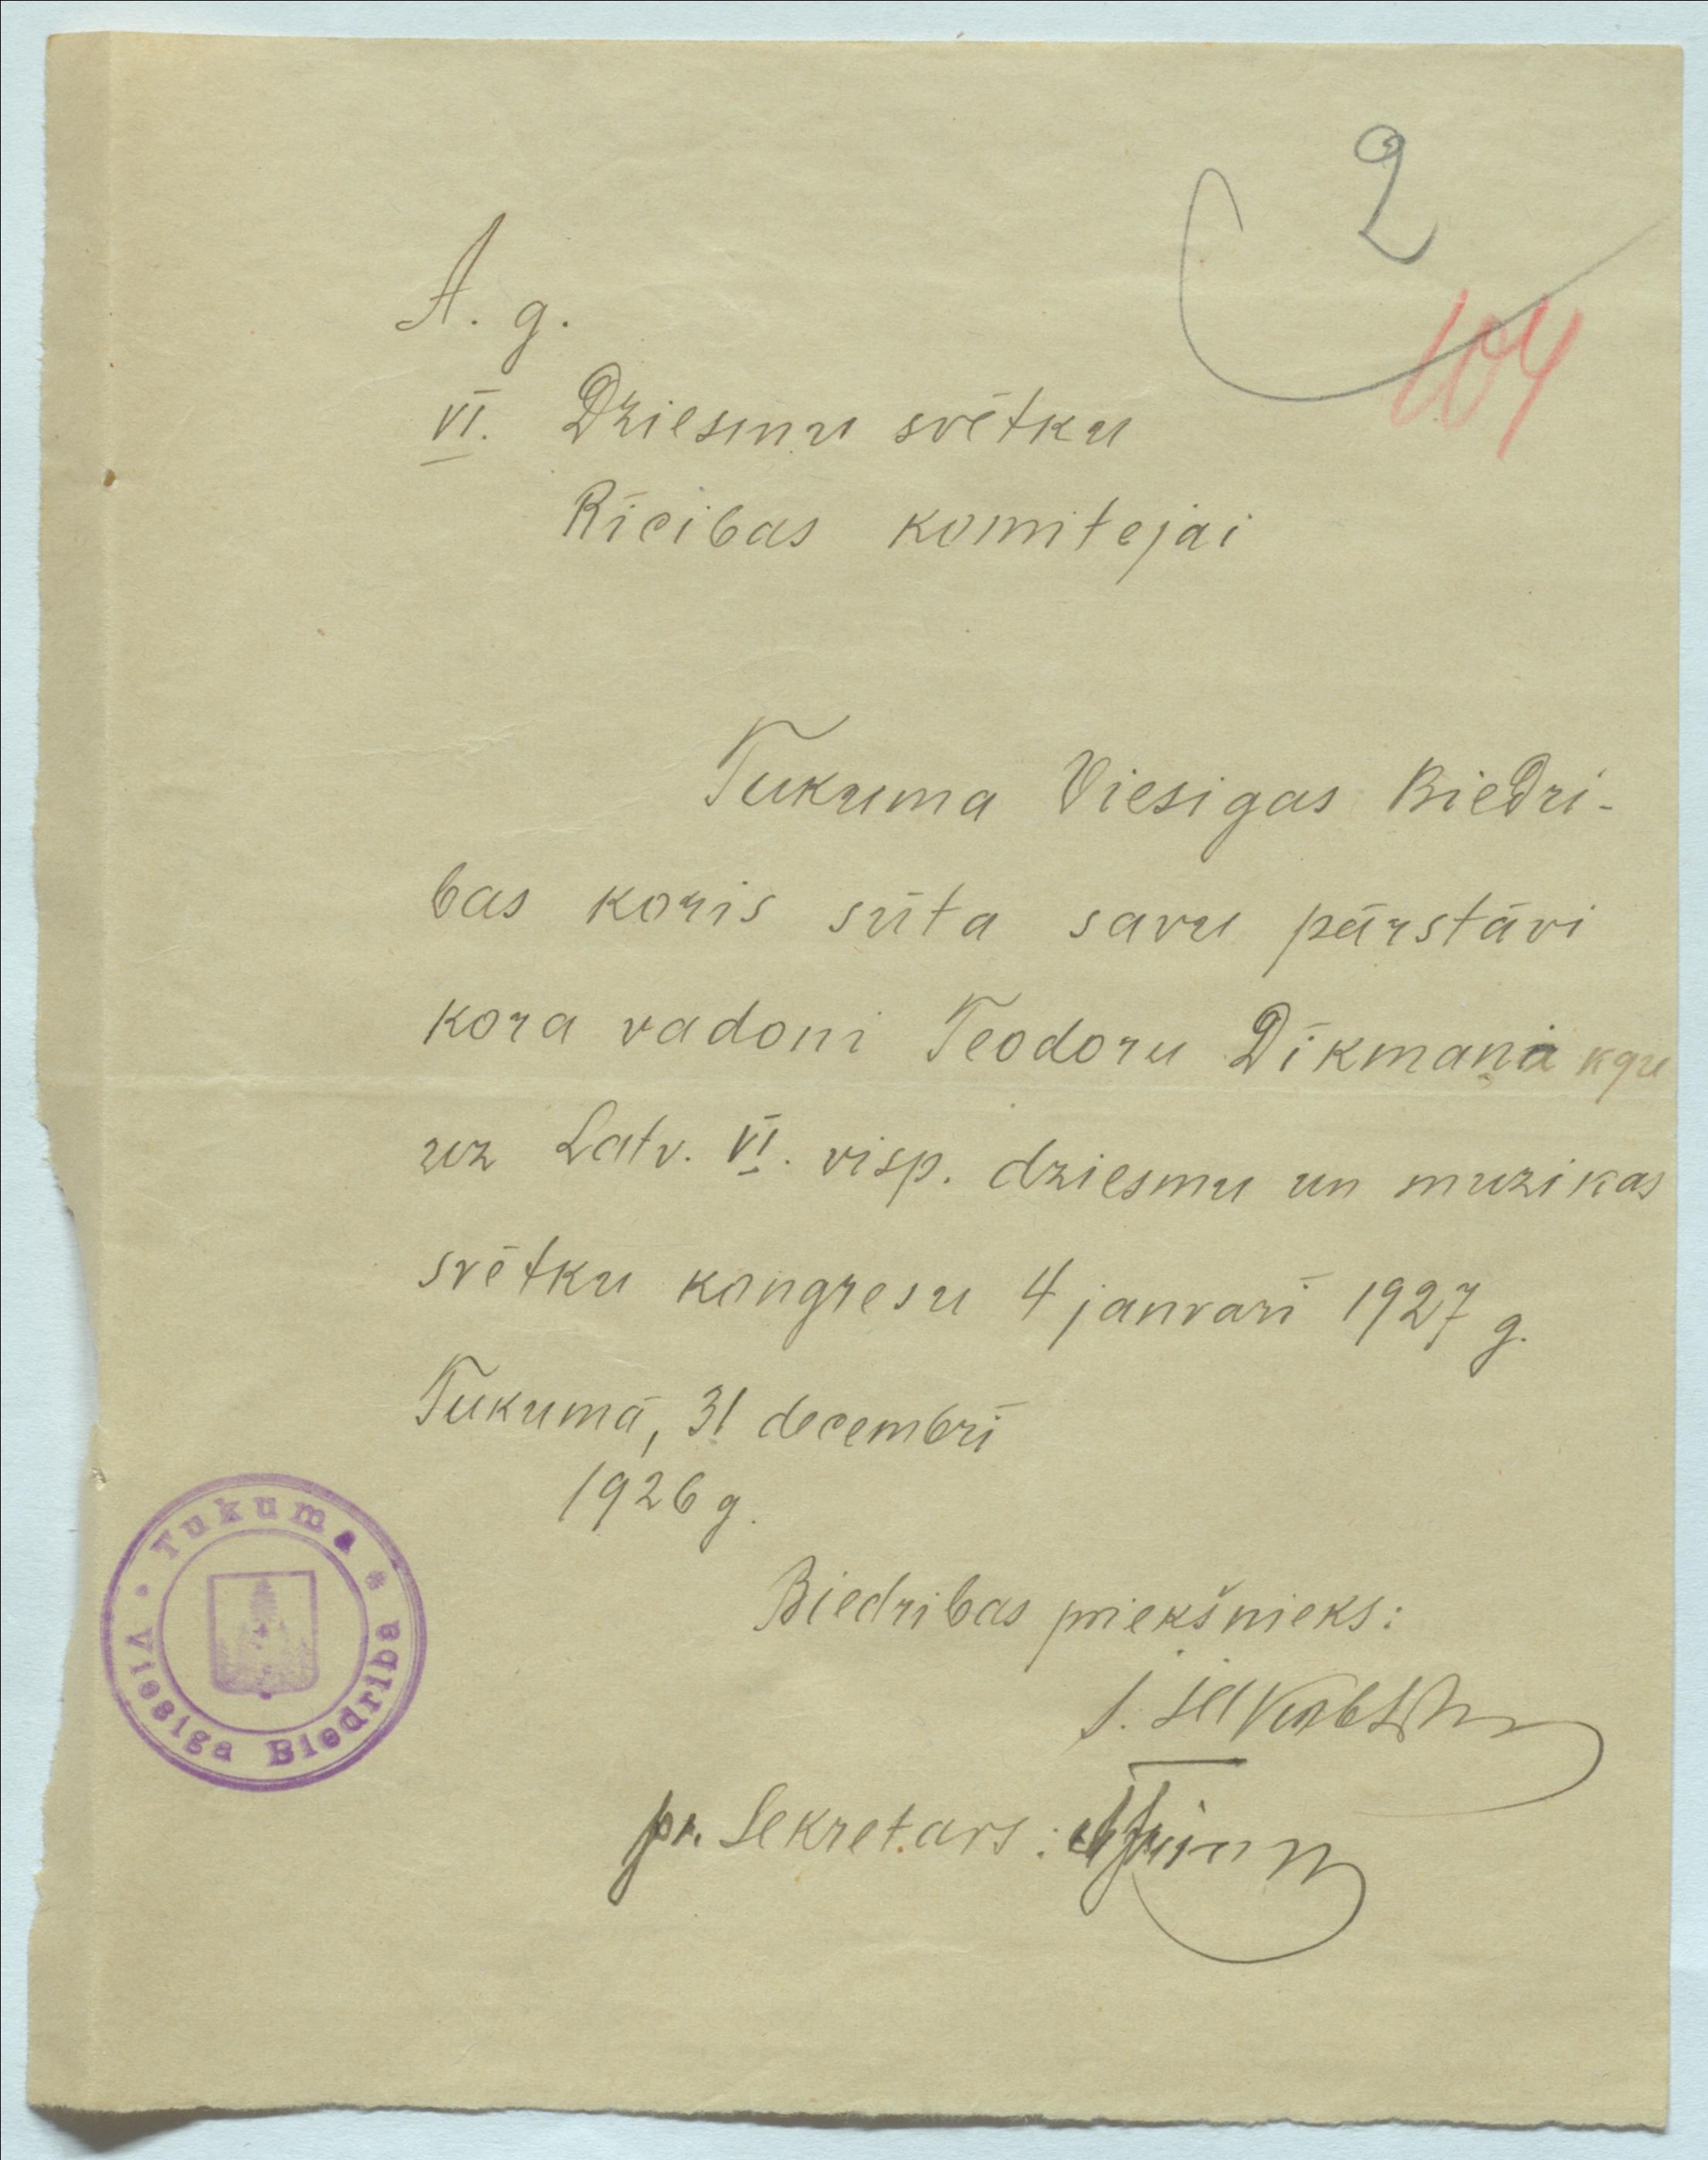 2
104
A. g.
VI. Dziesmu svētku
Rīcibas komitejai
Tukuma Viesigas Biedri-
bas koris sūta savu pārstāvi
kora vadoni Teodoru Dīkmaņa kgu
uz Latv. VI. visp. dziesmu un muzikas
svētku kongresu 4 janvarī 1927 g.
Tukumā, 31 decembrī
1926 g.
Tukuma
Viesiga Biedriba
Biedribas priekšnieks:
pr. Sekretars: